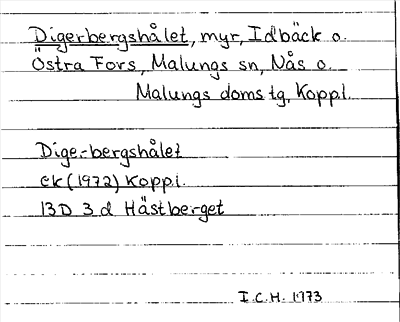 Digerbergshålet, myr, Idbäck o.
Östra Fors, Malungs sn, Nås o.
Malungs domstg, Koppl.
Digerbergshålet
ek (1972) Koppl.
13D 3d Hästberget
I.C.H. 1973